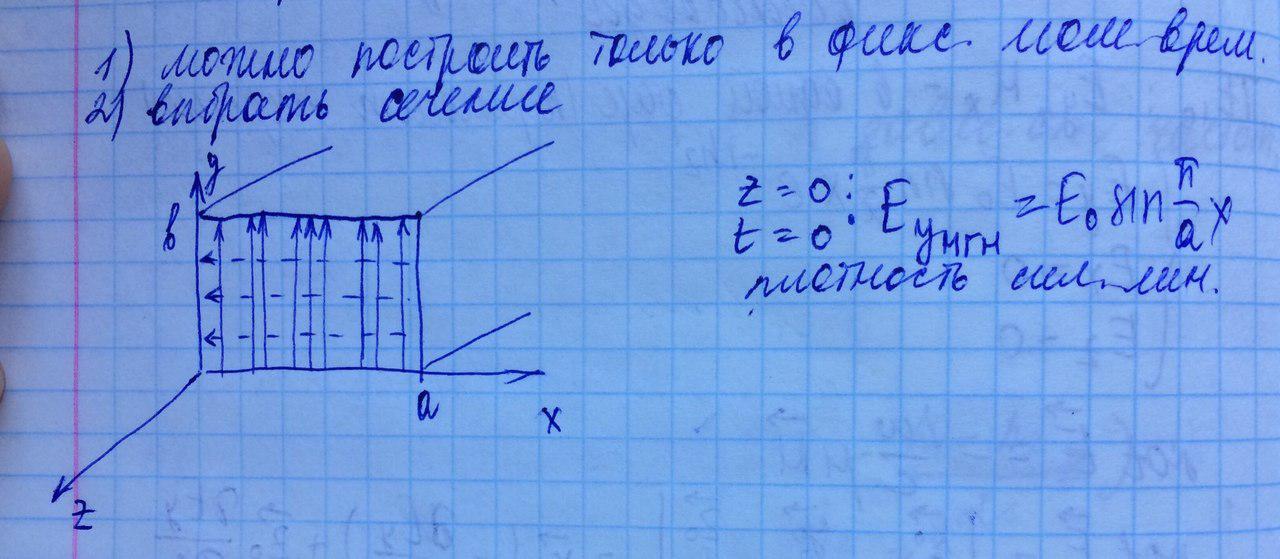 1) можно построить только в фикс. мом. врем.
2) выбрать сечение
y
b
a
x
z
z = 0 :
t = 0 : E_yмгн = E₀ sin π/a x
плотность сил. лин.